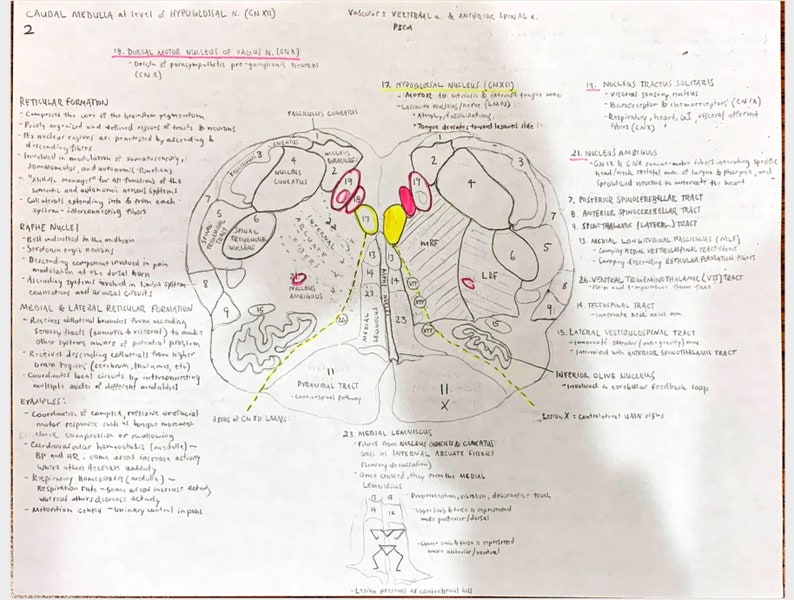 CAUDAL MEDULLA at level of HYPOGLOSSAL N. (CN XII)
2
VASCULAR: VERTEBRAL a. & ANTERIOR SPINAL a.
PICA
18. DORSAL MOTOR NUCLEUS OF VAGUS N. (CN X)
- Origin of parasympathetic pre-ganglionic neurons
(CN X)
RETICULAR FORMATION
- Comprises the core of the brainstem tegmentum
- Poorly organized and defined regions of tracts & neurons
- Its nuclear regions are penetrated by ascending &
descending fibers
- Involved in modulation of somatosensory,
somatomotor, and autonomic functions
- "Middle manager" for all functions of the
somatic and autonomic nervous systems
- Collaterals extending into & from each
system - interconnecting fibers
RAPHE NUCLEI
- Best understood in the midbrain
- Serotonin ergic neurons
- Descending component involved in pain
modulation at the dorsal horn
- Ascending systems involved in limbic system
connections and arousal circuits
MEDIAL & LATERAL RETICULAR FORMATION
- Receives collateral branches from ascending
sensory tracts (somatic & visceral) to make
other systems aware of potential problem
- Receives descending collaterals from higher
brain regions (cerebrum, thalamus, etc)
- Coordinates local circuits by interconnecting
multiple nuclei of different modalities
EXAMPLES:
- Coordination of complex, reflexive orofacial
motor responses such as tongue movement
cheek compression or swallowing
- Cardiovascular homeostasis (medulla) ~
BP and HR, some areas increase activity
whereas others decrease activity
- Respiratory homeostasis (medulla) ~
Respiration rate - some areas increase activity
whereas others decrease activity
- Micturition center - urinary control in pons
17. HYPOGLOSSAL NUCLEUS (CN XII)
- MOTOR to intrinsic & extrinsic tongue mm.
- Lesion to nucleus/nerve (LMN)
- Atrophy, fasciculations,
- Tongue deviates toward lesioned side
19. NUCLEUS TRACTUS SOLITARIS
- Visceral sensory nucleus
- Baroreceptor & chemoreceptors (CN IX)
- Respiratory, heart, GI, visceral afferent
fibers (CN X)
21. NUCLEUS AMBIGUUS
- CN IX & CN X
head/neck skeletal mm. of larynx & pharynx, and
specialized neurons to innervate the heart
7. POSTERIOR SPINOCEREBELLAR TRACT
8. ANTERIOR SPINOCEREBELLAR TRACT
9. SPINOTHALAMIC (LATERAL) TRACT
13. MEDIAL LONGITUDINAL FASCICULUS (MLF)
- Carrying MEDIAL VESTIBULOSPINAL TRACT fibers
- Carrying descending RETICULAR FORMATION fibers
26. VENTRAL TRIGEMINOTHALAMIC (VTT) TRACT
- Pain and temperature from face
14. TECTOSPINAL TRACT
- innervate neck axial mm
15. LATERAL VESTIBULOSPINAL TRACT
- innervate extensor (anti-gravity) mm.
- Intermixed with ANTERIOR SPINOTHALAMIC TRACT
INFERIOR OLIVE NUCLEUS
- Involved in cerebellar feedback loop
Lesion X = Contralateral UMN signs
FASCICULUS CUNEATUS
1
NUCLEUS GRACILIS
2
3
4
NUCLEUS CUNEATUS
19
18
17
5
SPINAL TRIGEMINAL TRACT
6
SPINAL TRIGEMINAL NUCLEUS
7
8
9
22
INTERNAL ARCUATE FIBERS
21
NUCLEUS AMBIGUUS
15
26
13
14
23
MEDIAL LEMNISCUS
RAPHE NUCLEI
11
PYRAMIDAL TRACT
- Corticospinal pathway
AXONS OF CN XII LMNs
1
2
4
19
MRF
LRF
VTT
VTT
13
14
23
15
5
6
7
8
9
11
X
23. MEDIAL LEMNISCUS
- Fibers from NUCLEUS GRACILIS & CUNEATUS
cross as INTERNAL ARCUATE FIBERS
(sensory decussation)
- Once crossed, they form the MEDIAL
LEMNISCUS
13 13
14 14
- Proprioception, vibration, descriminative touch
- Upper limb & torso is represented
more posterior/dorsal
- Lower limb & torso is represented
more anterior/ventral
- Lesion presents as contralateral loss